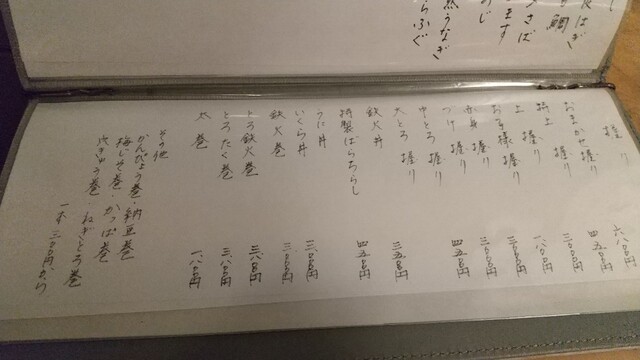 はぎ
鯛
さば
ます
うなぎ
らふぐ
握り
おまかせ握り 六八〇〇円
特上 握り 四五〇〇円
上 握り 三〇〇〇円
お子様握り 一八〇〇円
赤身 握り
づけ 握り 三〇〇〇円
中とろ 握り 四五〇〇円
大とろ 握り
鉄火丼 三五〇〇円
特製ばらちらし 四五〇〇円
うに丼
いくら丼 三〇〇〇円
鉄火巻 三〇〇〇円
とろ鉄火巻 三八〇〇円
とろたく巻 三八〇〇円
太巻 一八〇〇円
その他
かんぴょう巻・納豆巻
梅しそ巻 かっぱ巻
ねぎとろ巻
一本 三〇〇円から